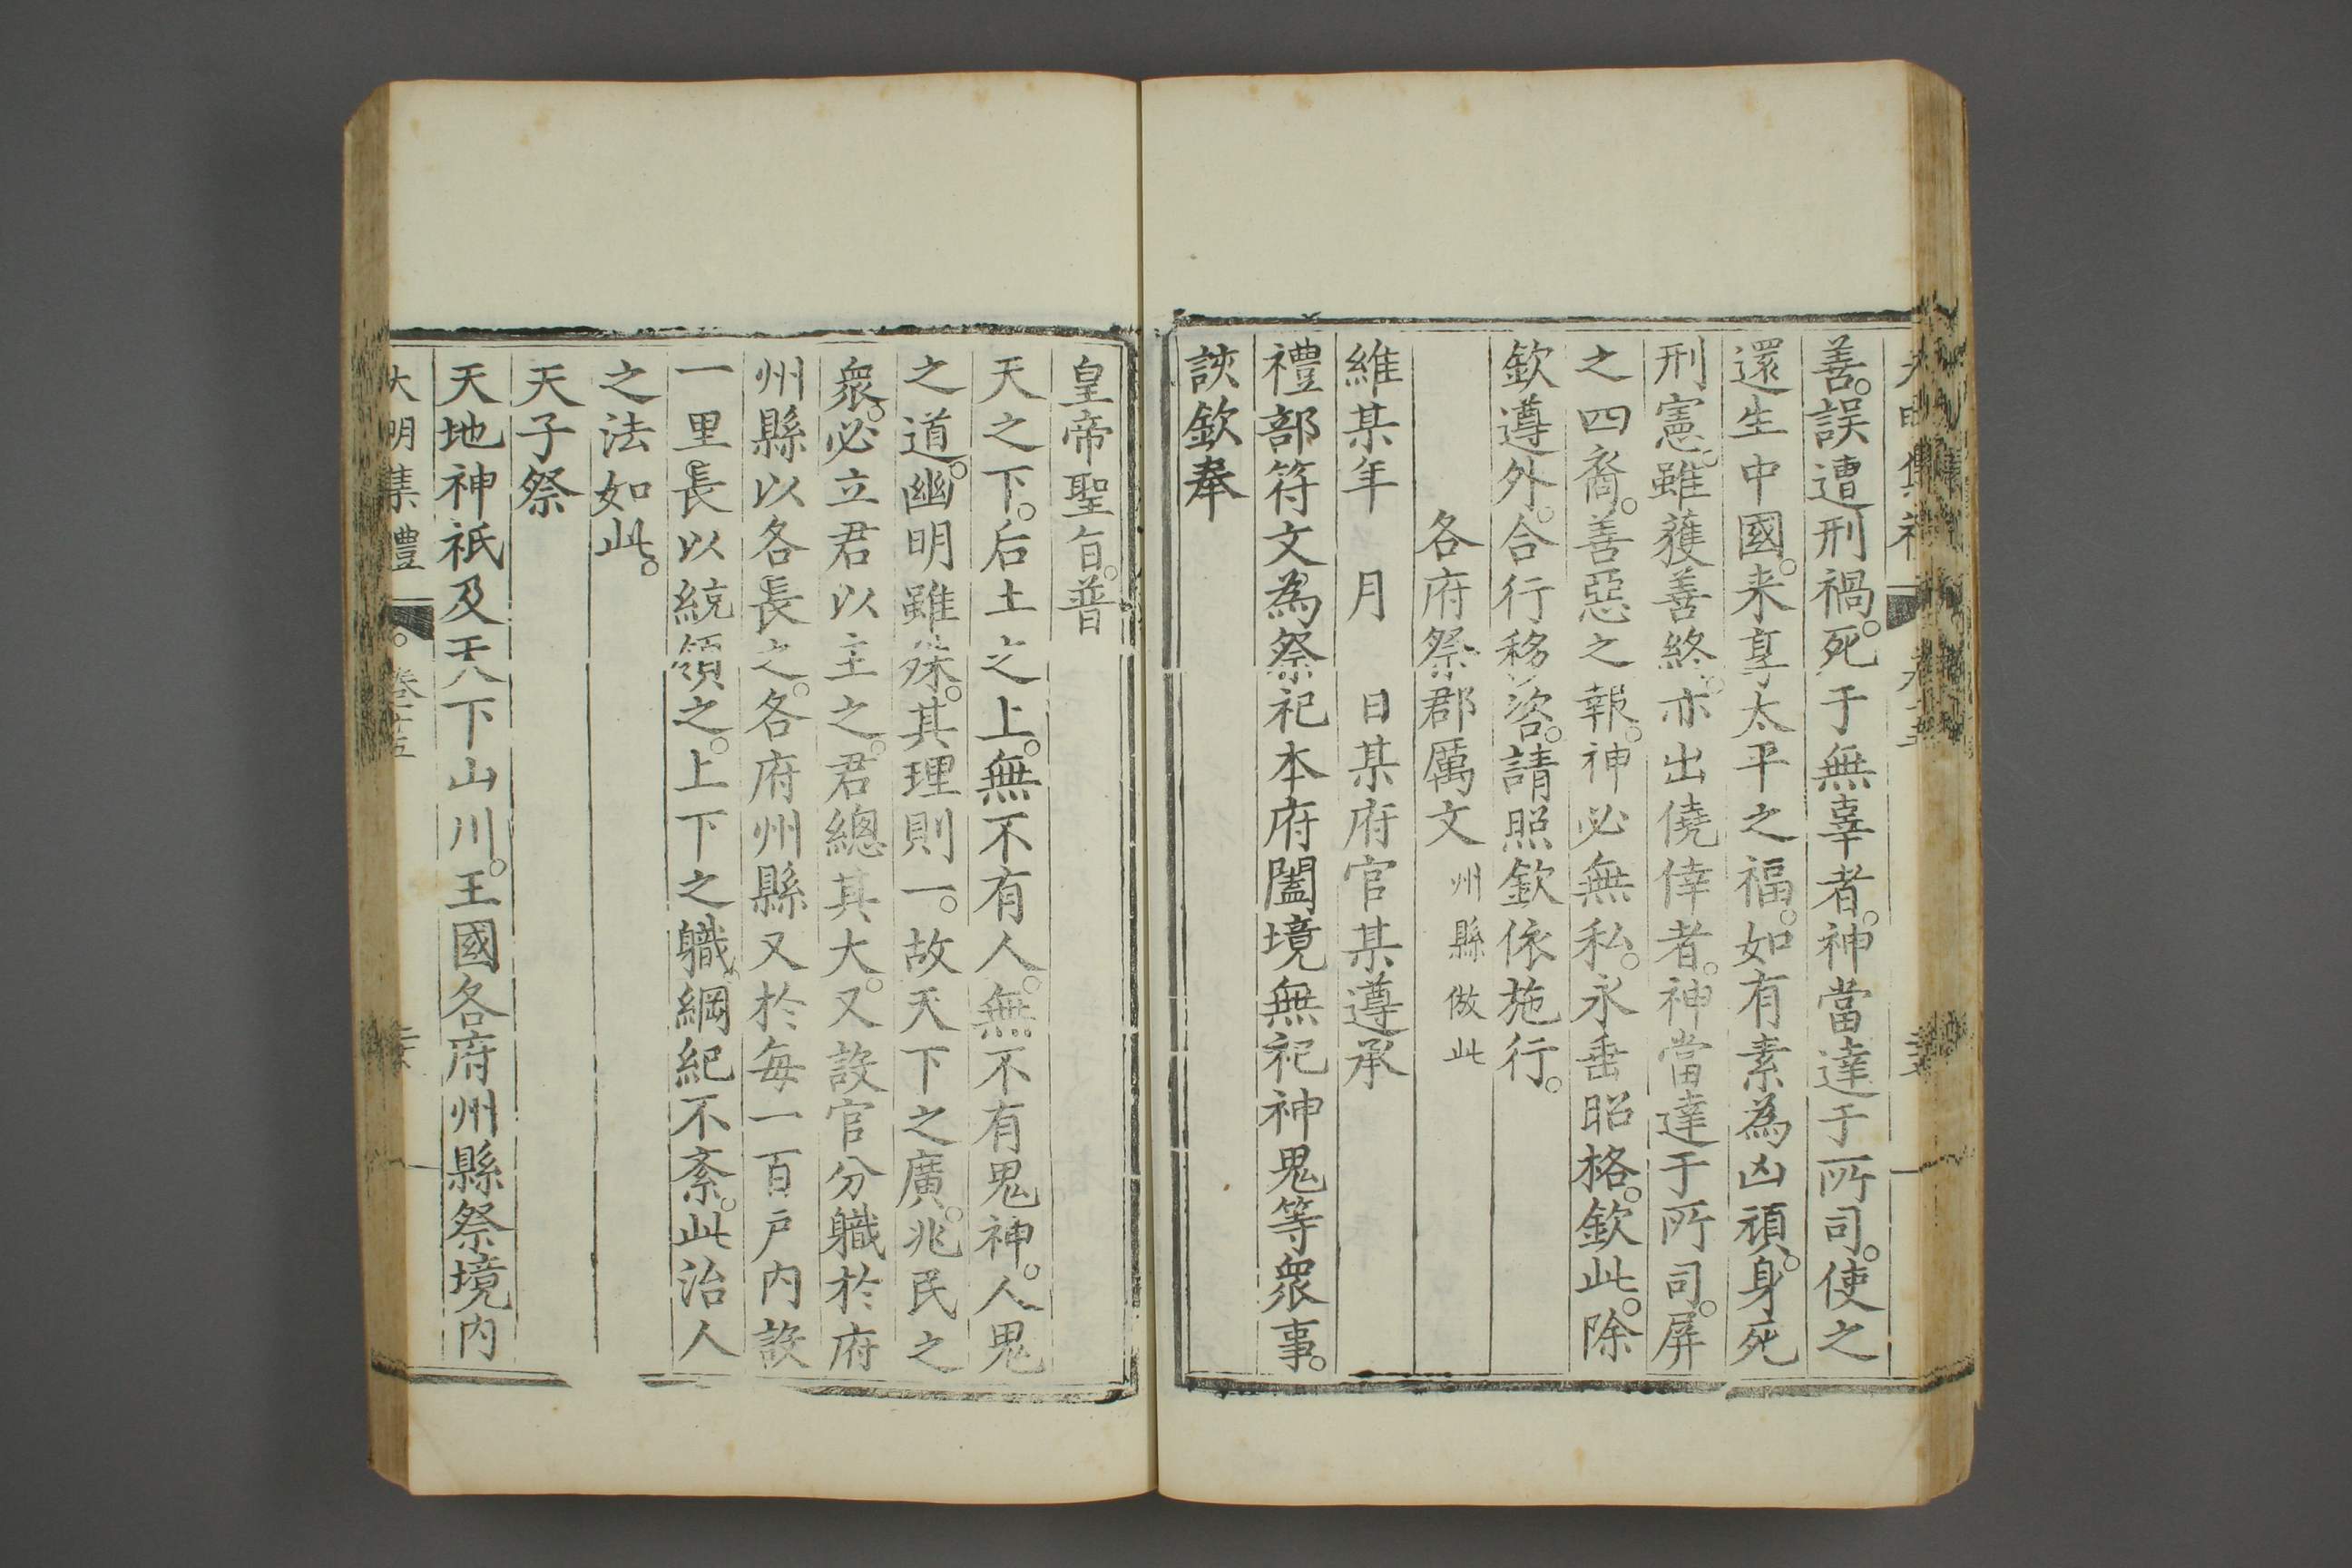 善。誤遭刑禍。死于無辜者。神當達于所司。使之
還生中國。来享太平之福。如有素為凶頑。身死
刑憲。雖獲善終。亦出僥倖者。神當達于所司。屏
之四裔。善惡之報。神必無私。永垂昭格。欽此。除
欽遵外。合行移咨。請照欽依施行。
各府祭郡厲文 州縣倣此
維某年 月 日某府官某遵承
禮部符文為祭祀本府闔境無祀神鬼等衆事。
該欽奉
皇帝聖旨。普
天之下。后土之上。無不有人。無不有鬼神。人鬼
之道。幽明雖殊。其理則一。故天下之廣。兆民之
衆。必立君以主之。君總其大。又設官分職於府
州縣以各長之。各府州縣又於每一百戶内設
一里長以統領之。上下之職。綱紀不紊。此治人
之法如此。
天子祭
天地神祇及天下山川。王國各府州縣祭境内
大明集禮 卷十五